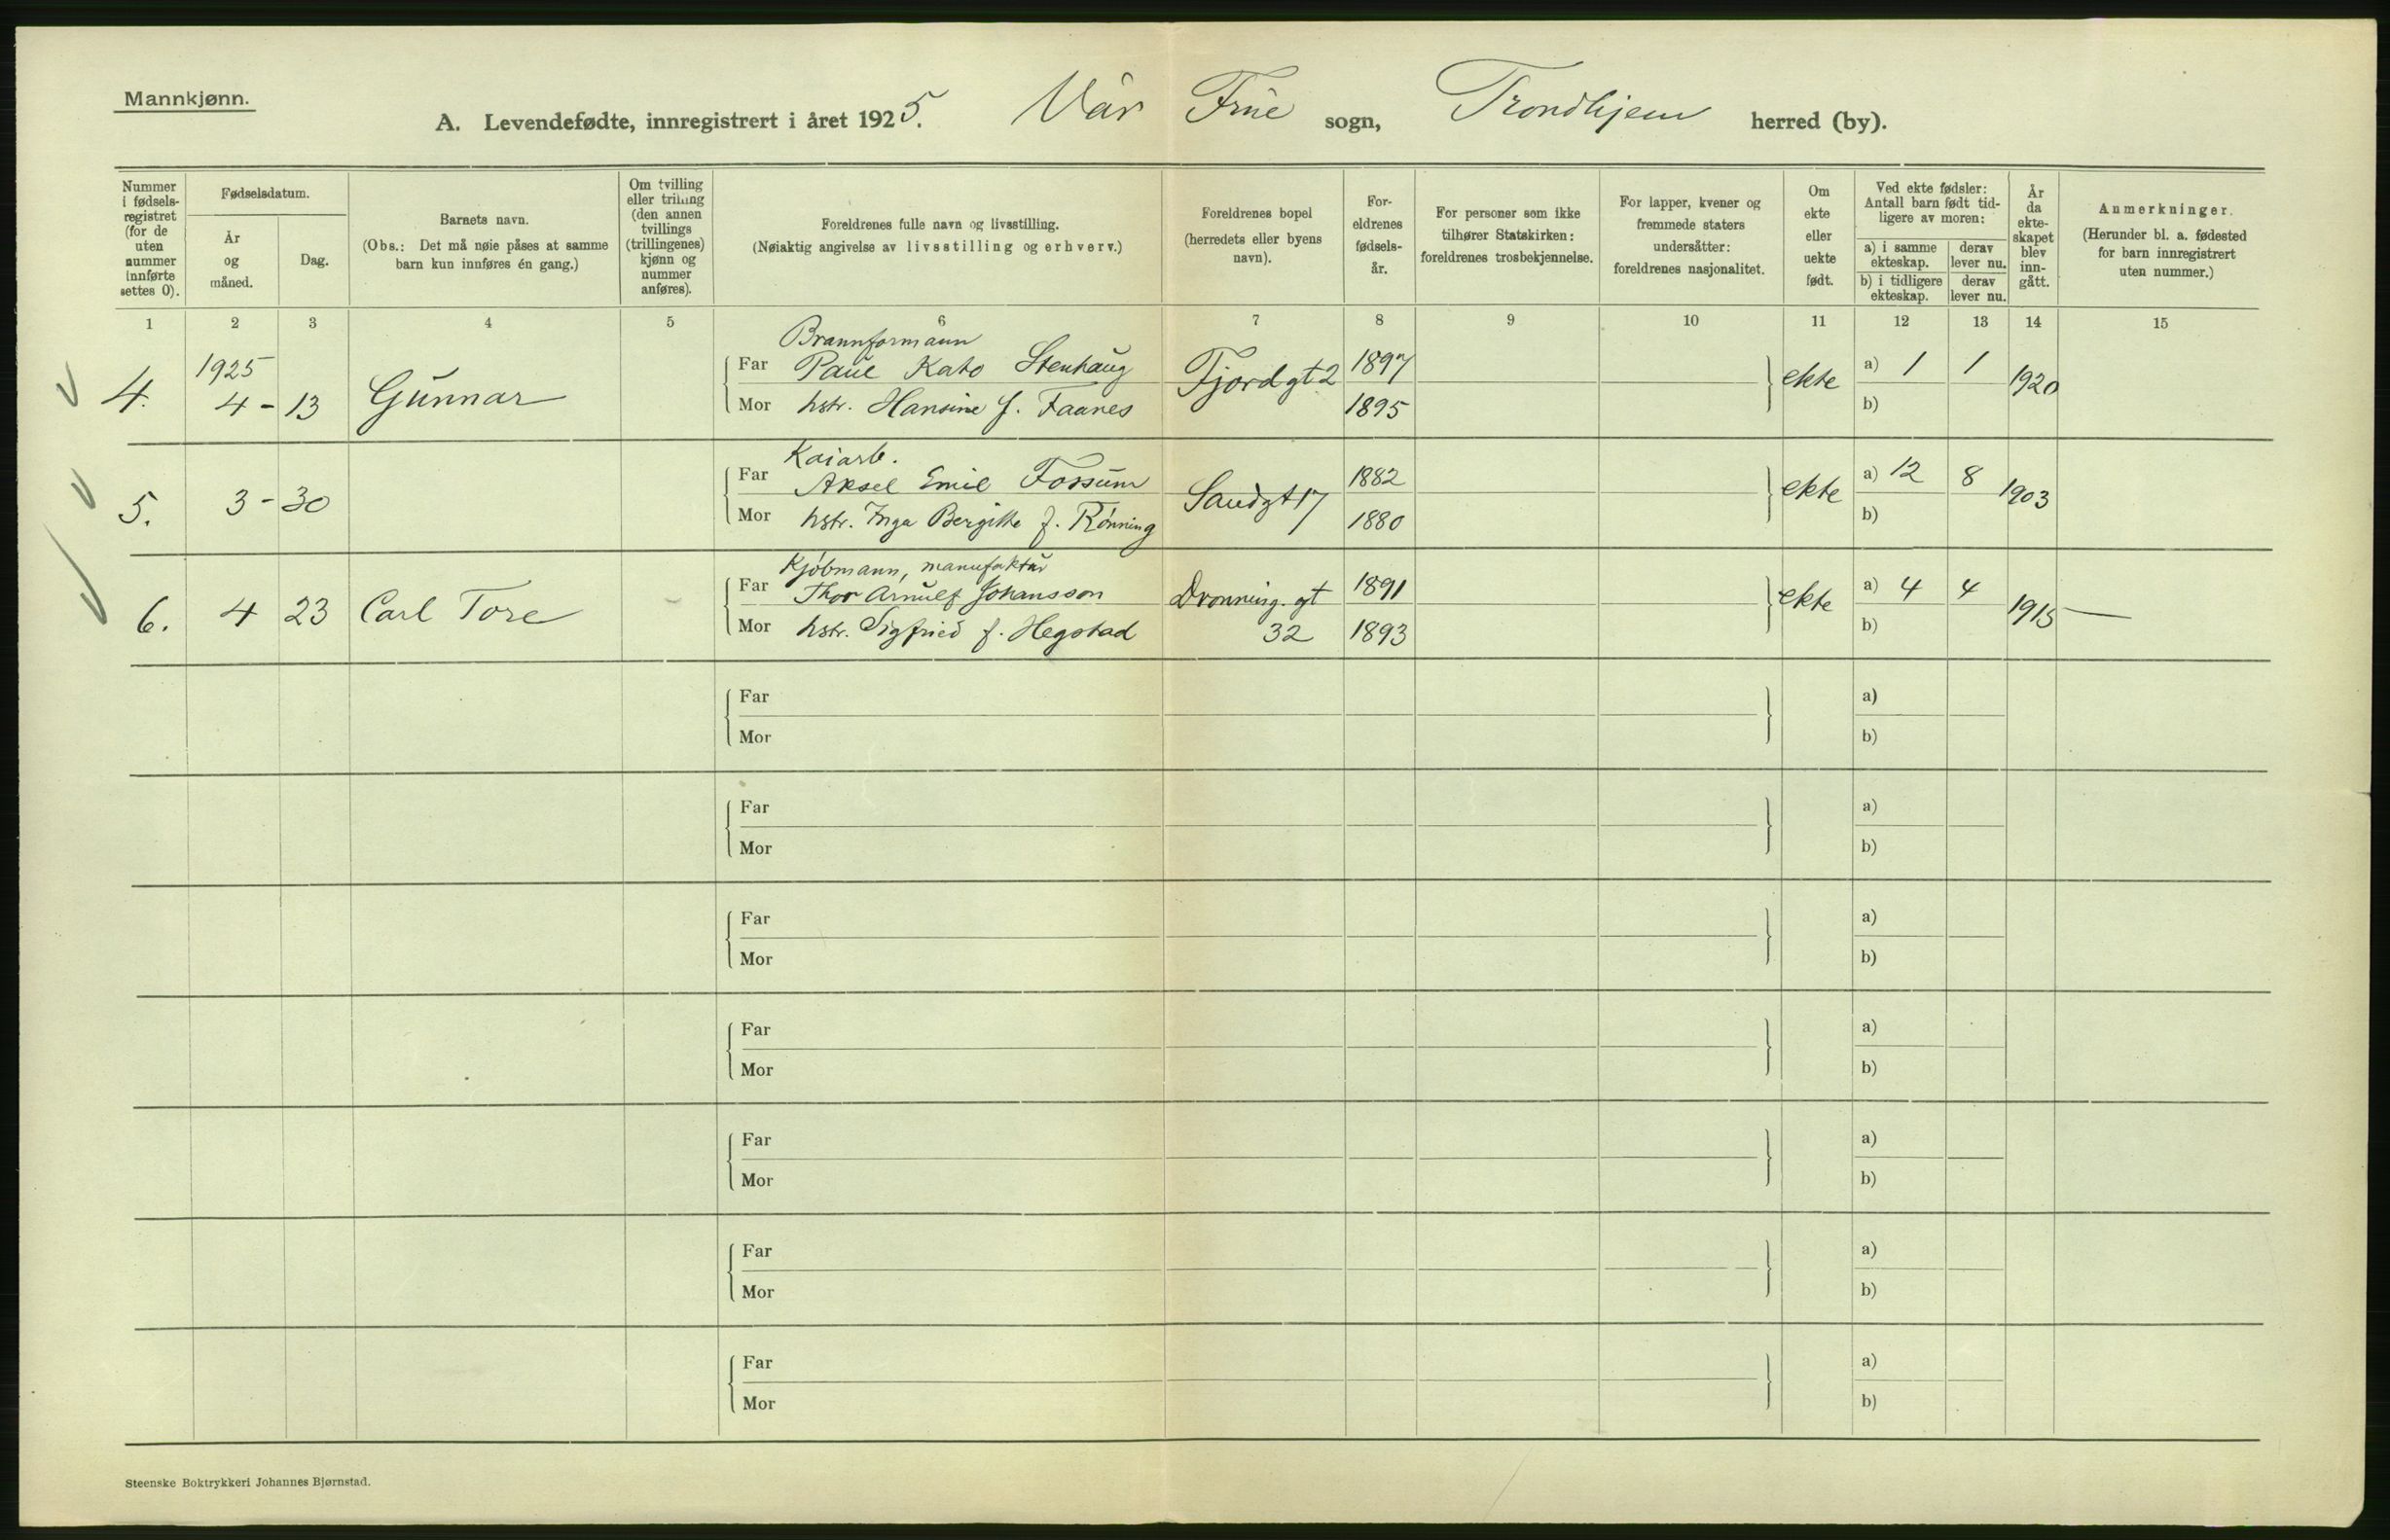 Mannkjønn.
A. Levendefødte, innregistrert i året 1925. Vår Frue sogn, Trondhjem herred (by).
Nummer i fødsels-registret (for de uten nummer innførte settes 0).
Fødselsdatum.
År og måned.
Dag.
Barnets navn.
(Obs.: Det må nøie påses at samme barn kun innføres én gang.)
Om tvilling eller trilling (den annen tvillings (trillingenes) kjønn og nummer anføres).
Foreldrenes fulle navn og livsstilling.
(Nøiaktig angivelse av livsstilling og erhverv.)
Foreldrenes bopel (herredets eller byens navn).
For-eldrenes fødsels-år.
For personer som ikke tilhører Statskirken: foreldrenes trosbekjennelse.
For lapper, kvener og fremmede staters undersåtter: foreldrenes nasjonalitet.
Om ekte eller uekte født.
Ved ekte fødsler: Antall barn født tid-ligere av moren:
a) i samme ekteskap. derav lever nu.
b) i tidligere ekteskap. derav lever nu.
År da ekte-skapet blev inn-gått.
Anmerkninger.
(Herunder bl. a. fødested for barn innregistrert uten nummer.)
1 2 3 4 5 6 7 8 9 10 11 12 13 14 15
Brannformann
1925 Far Paul Kato Stenhaug Fjordgt 2 1897 a) 1 1
4. 4 - 13 Gunnar ekte 1920
Mor hstr. Hansine f. Faanes 1895 b)
Kaiarb.
Far Aksel Emil Fossum Sandgt 17 1882 a) 12 8
5. 3 - 30 ekte 1903
Mor hstr. Inga Bergitte f. Rønning 1880 b)
Kjøbmann, manufaktur
Far Thor Arnulf Johansson Dronning. gt 1891 a) 4 4
6. 4 23 Carl Tore ekte 1915 —
Mor hstr. Sigfried f. Hegstad 32 1893 b)
Far a)
Mor b)
Far a)
Mor b)
Far a)
Mor b)
Far a)
Mor b)
Far a)
Mor b)
Far a)
Mor b)
Far a)
Mor b)
Steenske Boktrykkeri Johannes Bjørnstad.